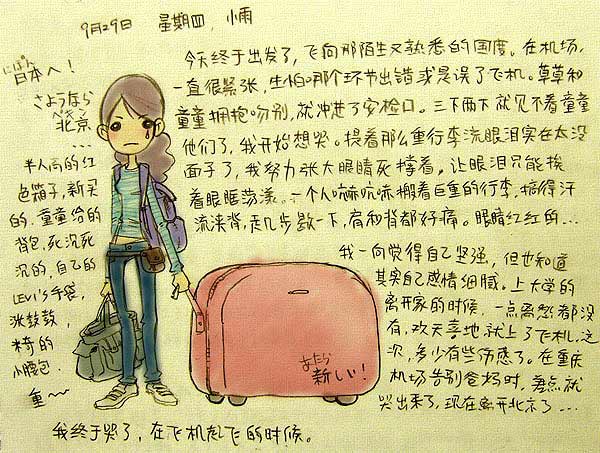 9月29日 星期四, 小雨
今天终于出发了，飞向那陌生又熟悉的国度。在机场，
一直很紧张，生怕哪个环节出错或是误了飞机。草草和
童童拥抱吻别，就冲进了安检口。三下两下就见不着童童
他们了，我开始想哭。提着那么重行李流眼泪实在太没
面子了，我努力张大眼睛死撑着，让眼泪只能挨
着眼眶荡漾。一个人嘛吭哧搬着巨重的行李，搞得汗
流浃背，走几步歇一下，肩和背都好痛。眼睛红红的...
我一向觉得自己坚强，但也知道
其实自己感情细腻。上大学的
离开家的时候，一点离愁都没
有，欢天喜地就上了飞机，这
次，多少有些伤感了。在重庆
机场告别爸妈时，差点就
哭出来了，现在离开北京了...
にほん
日本へ！
さようなら
ペキン
北京
...
半人高的红
色箱子，新买
的，童童给的
背包，死沉死
沉的，自己的
LEVI'S手袋，
涨鼓鼓，
米奇的
小腰包。
重~~
あたら
新しい！
我终于哭了，在飞机起飞的时候。